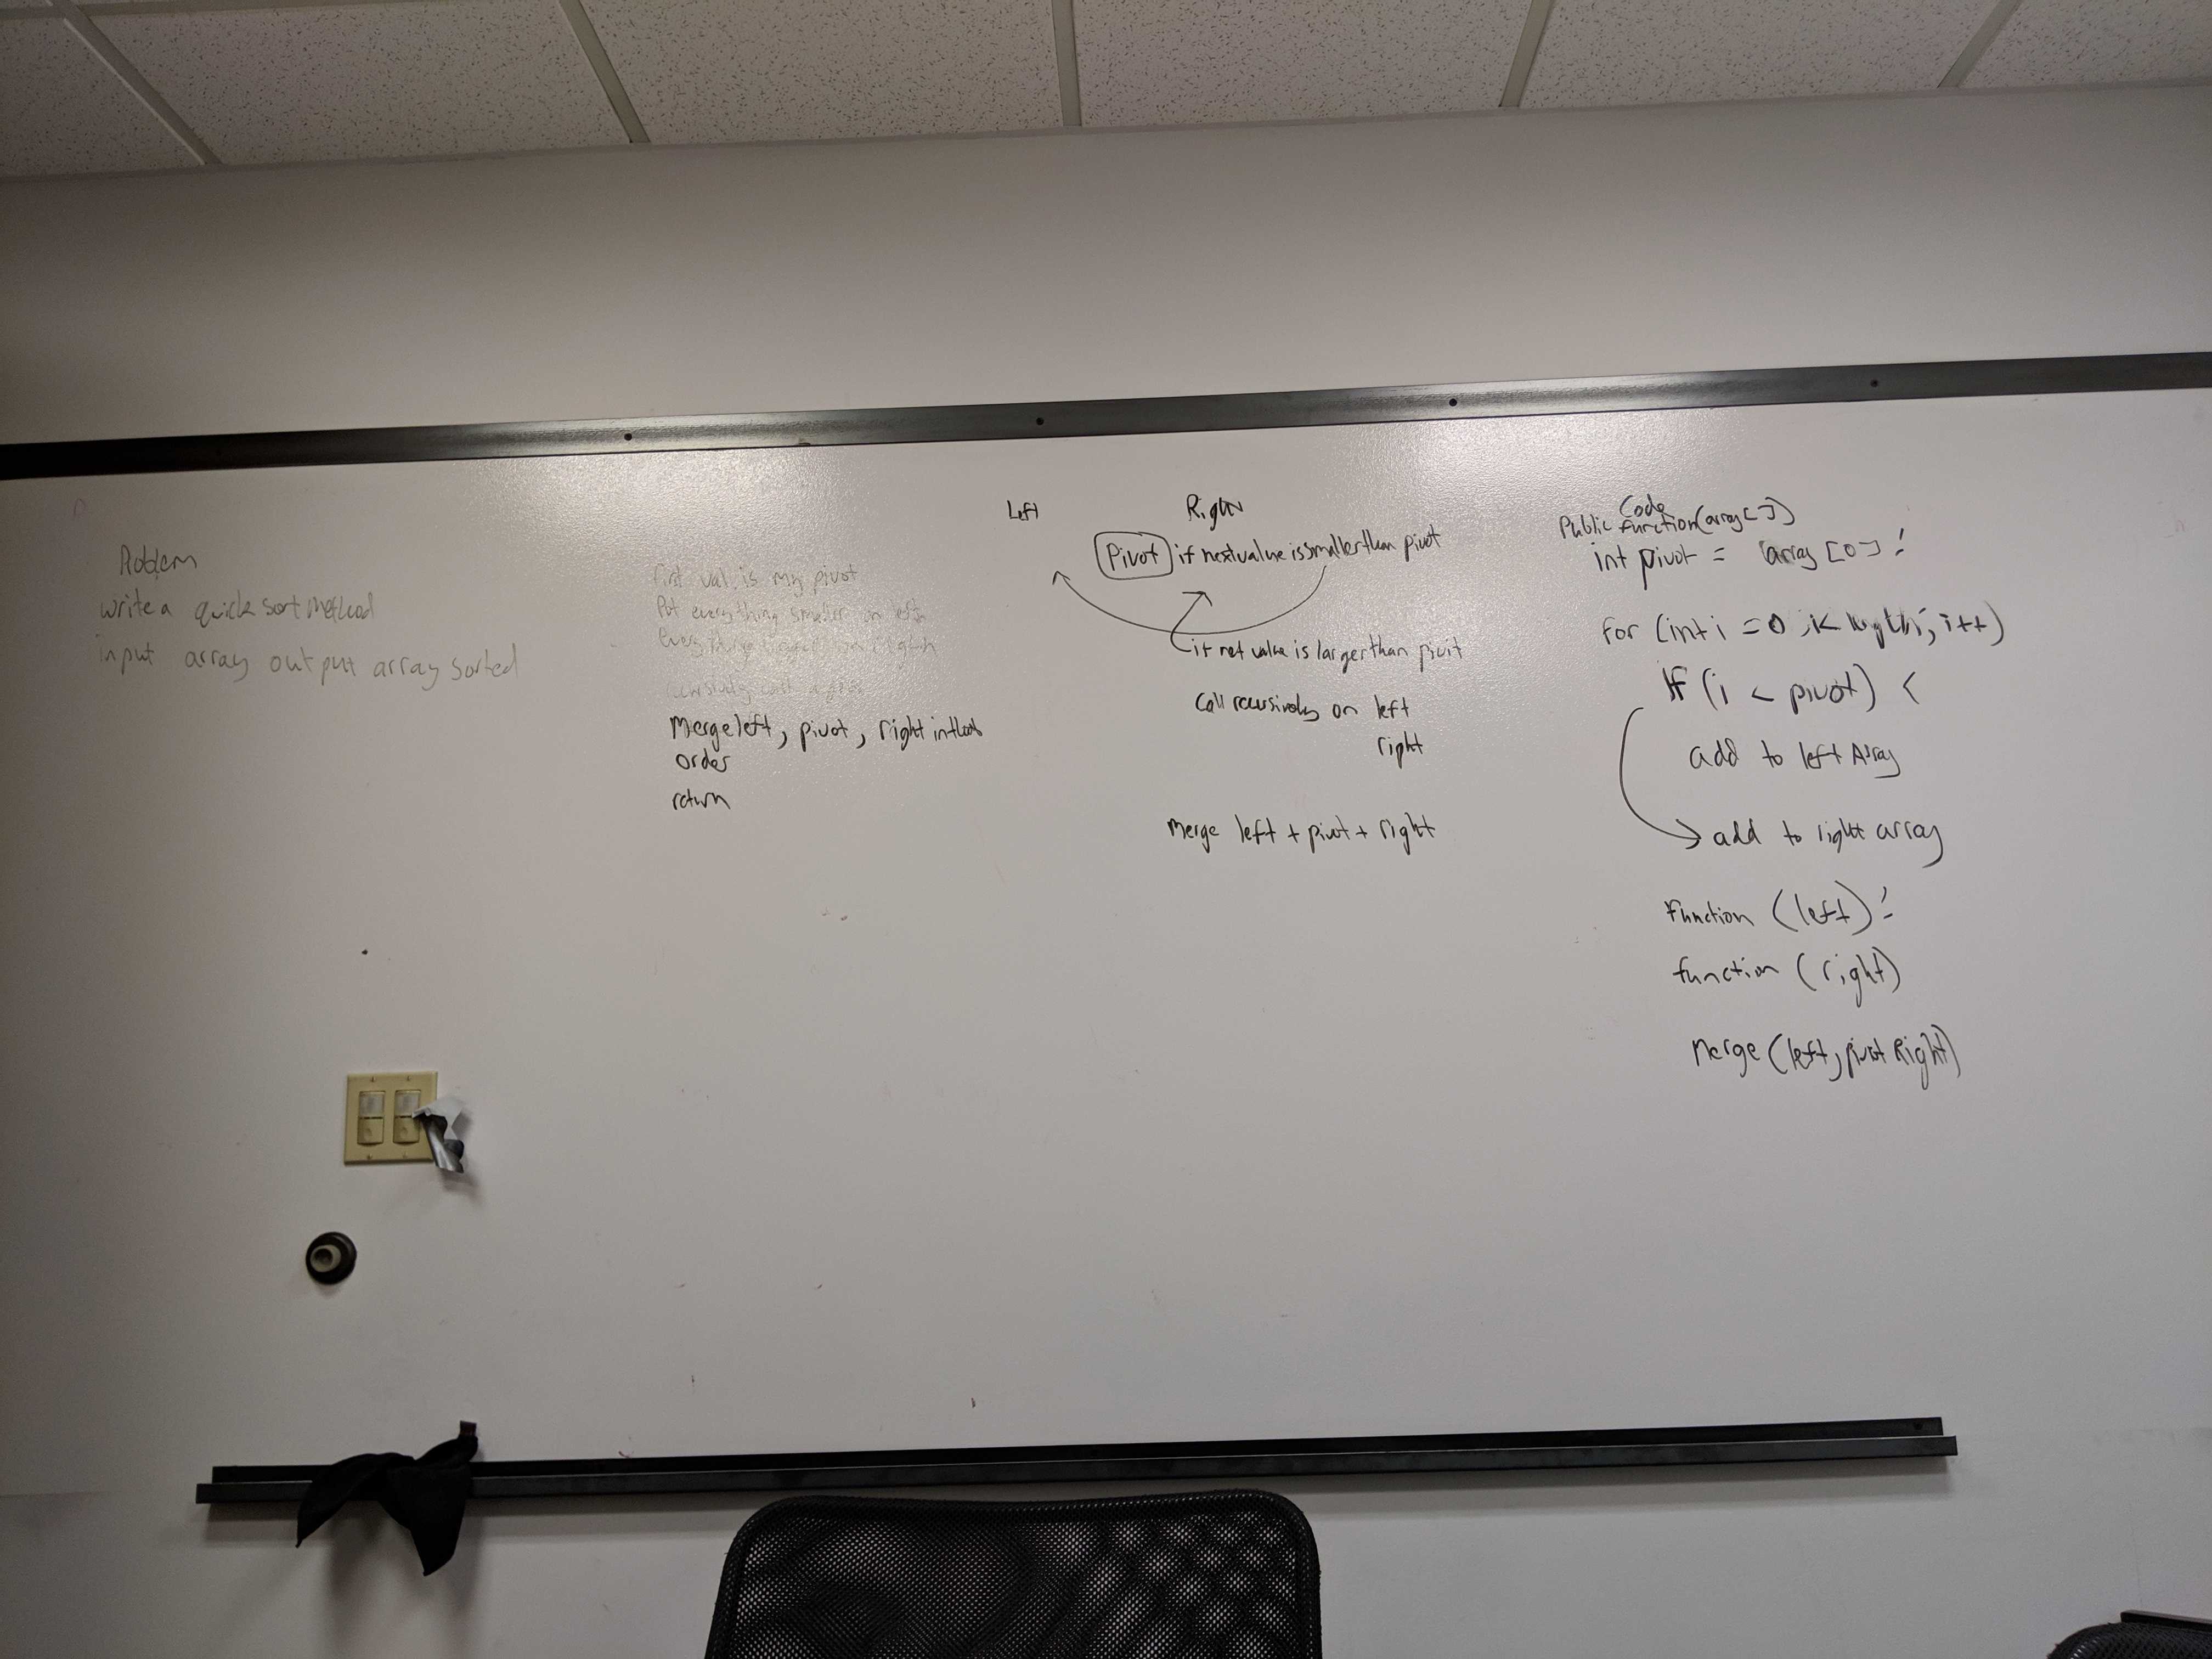 Problem
write a quick sort method
input array output array sorted
first val. is my pivot
Put everything smaller on left
everything larger on right
recursively call
Merge left, pivot, right
order
return
Left
Right
Pivot if next value is smaller than pivot
if net value is larger than pivit
Call recursively on left
right
Merge left + pivot + right
Code
Public function(array[])
int pivot = array[0];
for (int i = 0; i< length; i++)
If (i < pivot) <
add to left Array
add to right array
function (left);
function (right)
Merge (left, pivot Right)